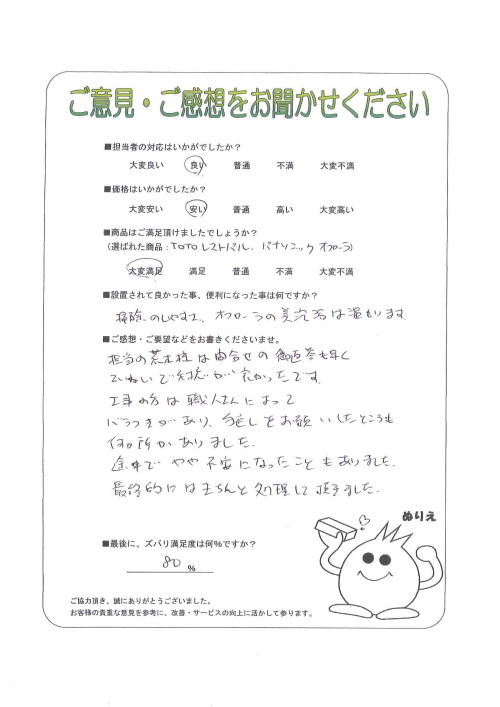 ご意見・ご感想をお聞かせください
■担当者の対応はいかがでしたか？
大変良い 良い 普通 不満 大変不満
■価格はいかがでしたか？
大変安い 安い 普通 高い 大変高い
■商品はご満足頂けましたでしょうか？
(選ばれた商品：TOTOレストパル、パナソニック オフローラ)
大変満足 満足 普通 不満 大変不満
■設置されて良かった事、便利になった事は何ですか？
掃除のしやすさ、オフローラの美泡浴は温もります
■ご感想・ご要望などをお書きくださいませ。
担当の荒木様は問合せの御返答も早く
ていねいで対応が良かったです。
工事の方は職人さんによって
バラつきがあり、手直しをお願いしたところも
何ヶ所かありました。
途中でやや不安になったこともありました。
最終的にはきちんと処理して頂きました。
ぬりえ
■最後に、ズバリ満足度は何%ですか？
80 %
ご協力頂き、誠にありがとうございました。
お客様の貴重な意見を参考に、改善・サービスの向上に活かして参ります。